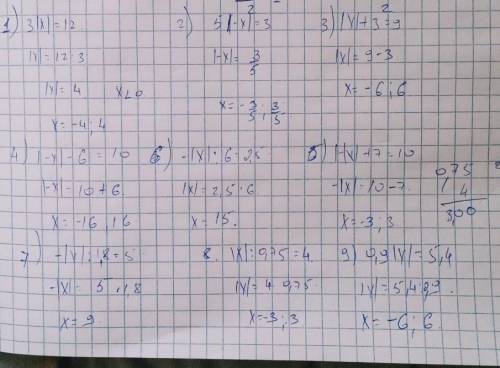 1) 3|x|=12
|x|=12:3
|x|=4 x∠0
x=-4;4
2) 5|-x|=3
|-x|=3/5
x=-3/5;3/5
3) |x|+3=9
|x|=9-3
x=-6;6
4) |-x|-6=10
|-x|=10+6
x=-16,16
6) -|x|:6=2,5
|x|=2,5·6
x=15.
5) |-x|+7=10
-|x|=10-7
x=-3;3
0,75
4
3,00
7) -|x|:1,8=5
-|x|=5·1,8
x=9
8. |x|:0,75=4
|x|=4·0,75
x=-3;3
9) 0,9|x|=5,4
|x|=5,4:0,9
x=-6;6